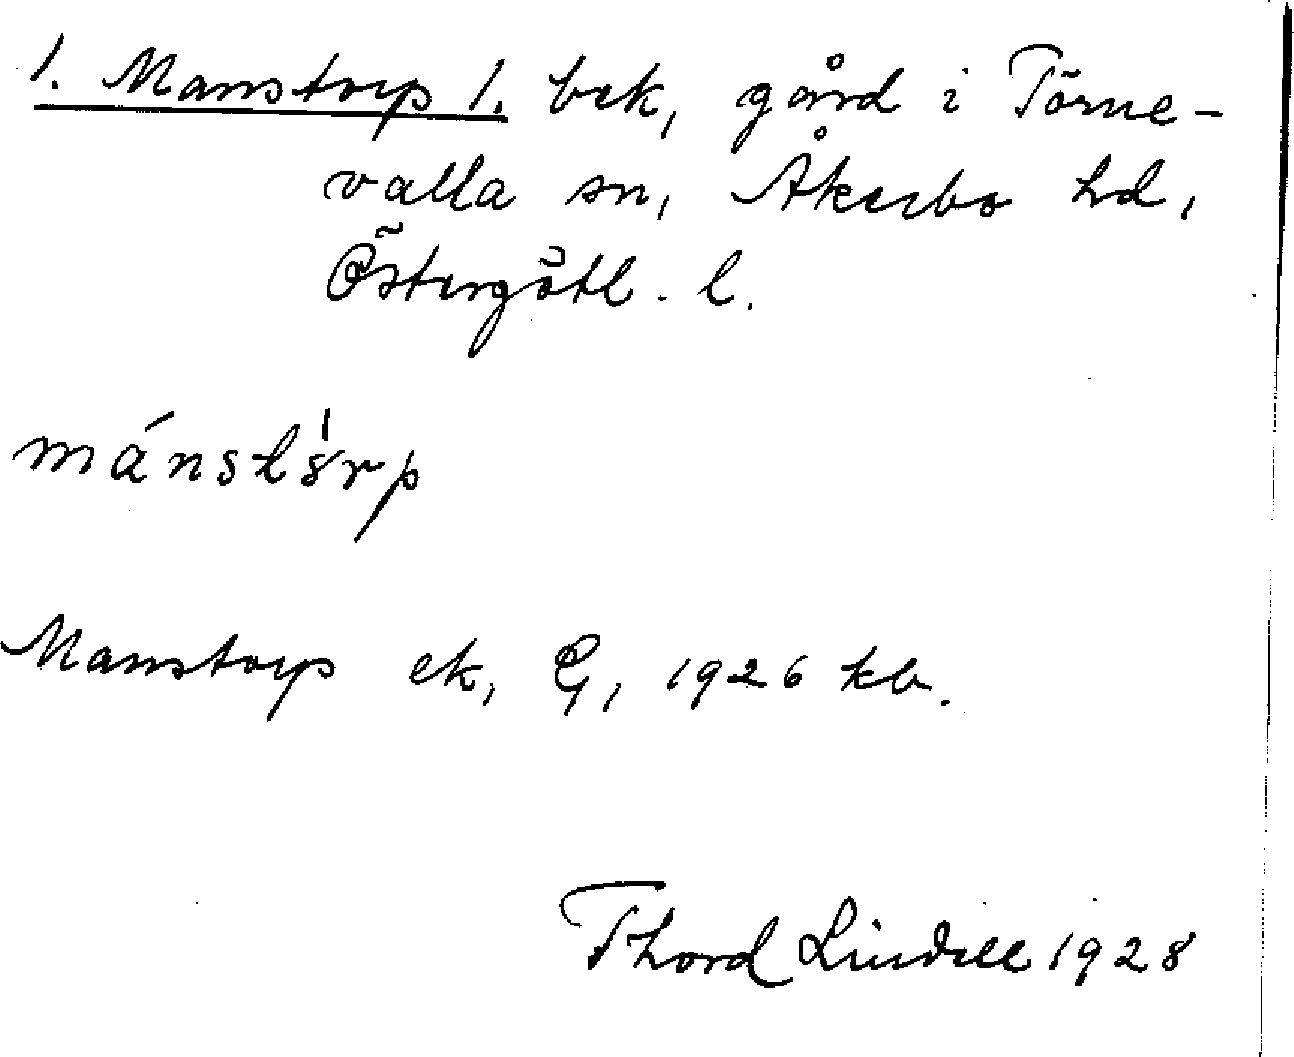 1. Manstorp 1. bek, gård i Törne-
valla sn, Åkerbo hd,
Östergötl. l.
mánstȣ̀rp
Manstorp ek, G, 1926 kb.
Thord Lindell 1928